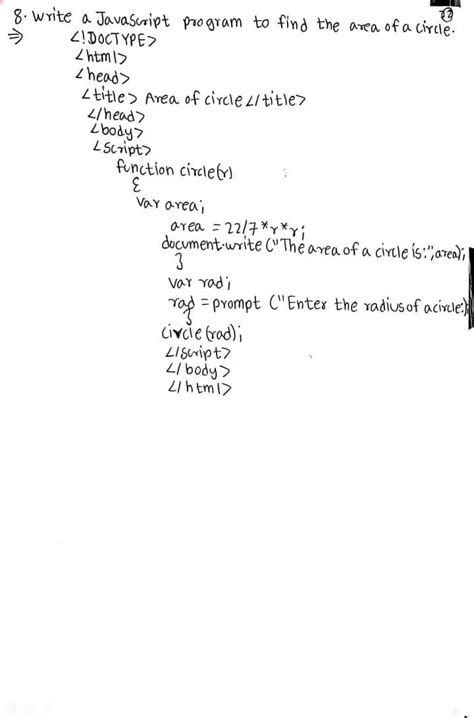 8. Write a JavaScript program to find the area of a circle.
⇒ <!DOCTYPE>
<html>
<head>
<title> Area of circle </title>
</head>
<body>
<script>
function circle(r)
{
var area;
area = 22/7*r*r;
document.write ("The area of a circle is:",area);
}
var rad;
rad = prompt ("Enter the radius of a circle:");
circle (rad);
</script>
</body>
</html>